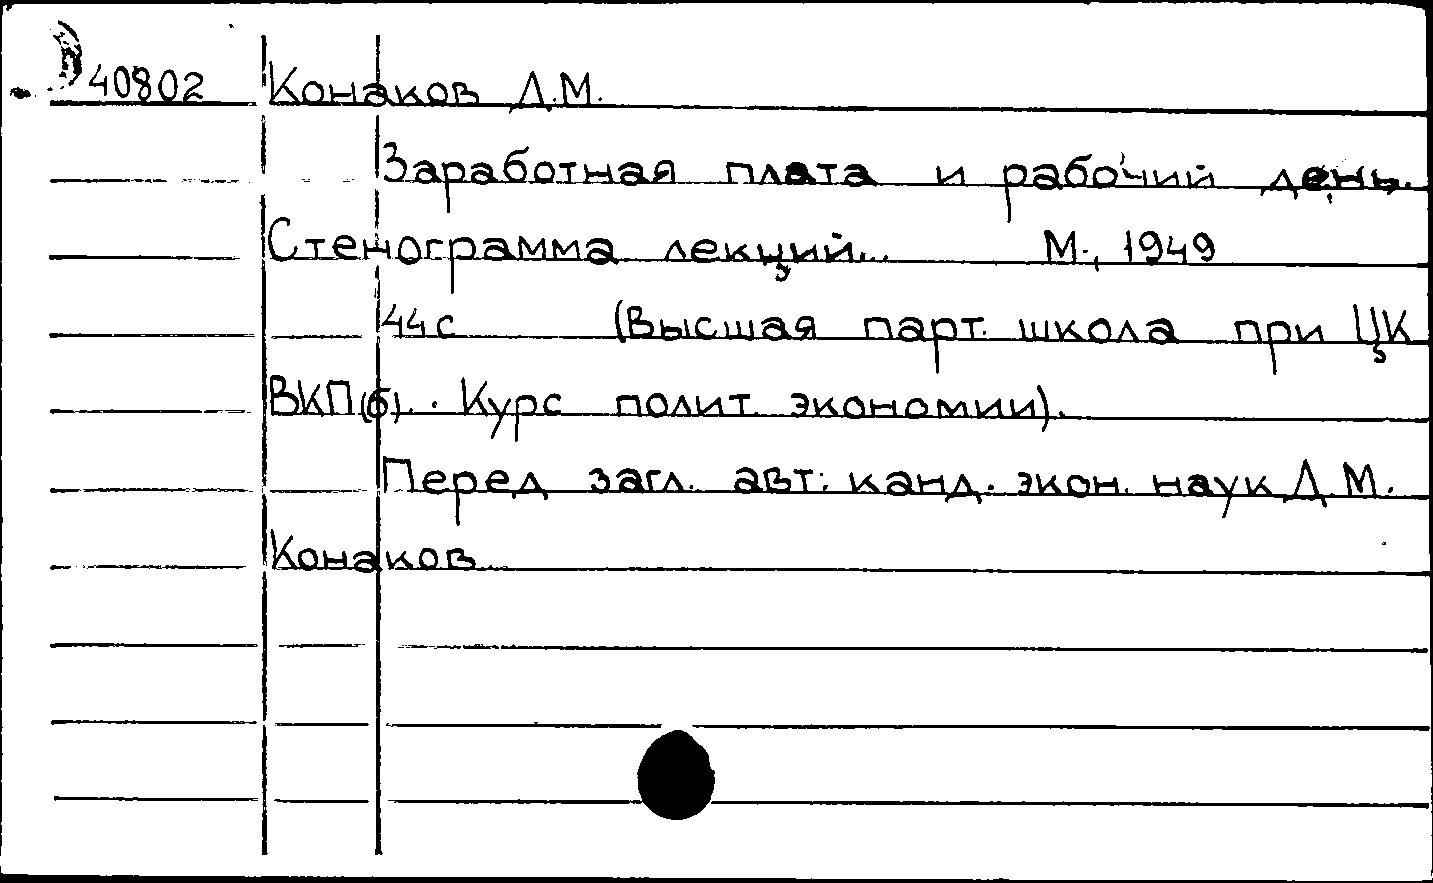 40802 Конаков Д.М.
Заработная плата и рабочий день.
Стенограмма лекций... М., 1949
44с (Высшая парт. школа при ЦК
ВКП(б). Курс полит. экономии).
Перед загл. авт: канд. экон. наук Д.М.
Конаков